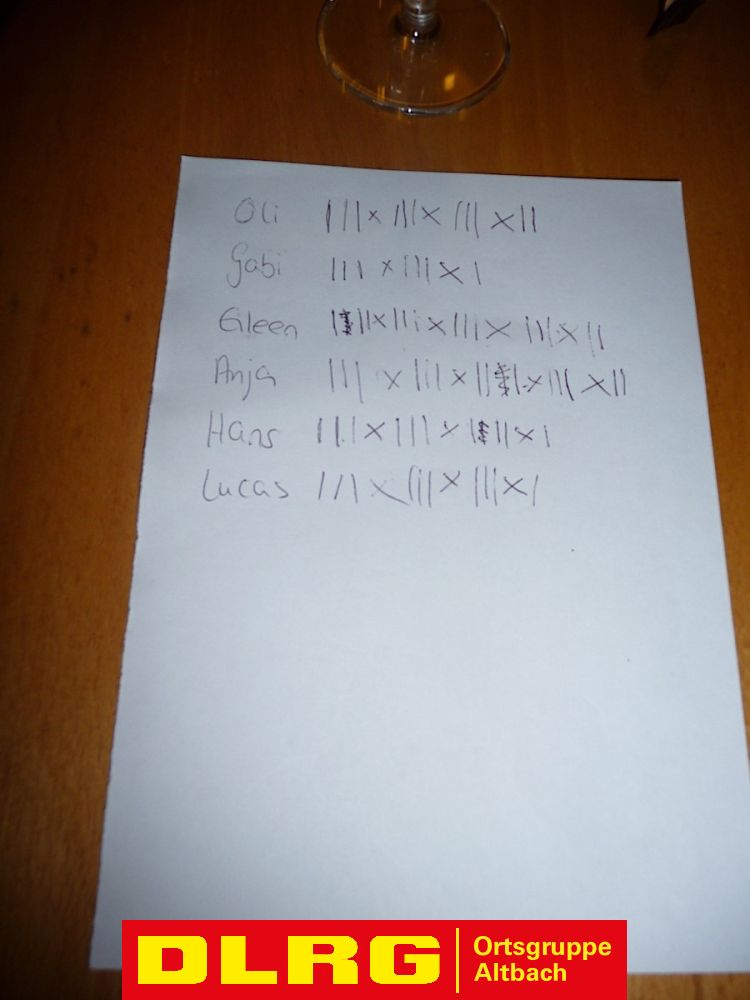 Oli ||| x ||| x ||| x ||
Gabi ||| x |||| x |
Eileen ||| x |||| x |||| x |||| x ||
Anja ||| x ||| x ||| x ||| x ||
Hans |||| x |||| x ||| x |
Lucas ||| x |||| x ||| x |
DLRG
Ortsgruppe
Altbach